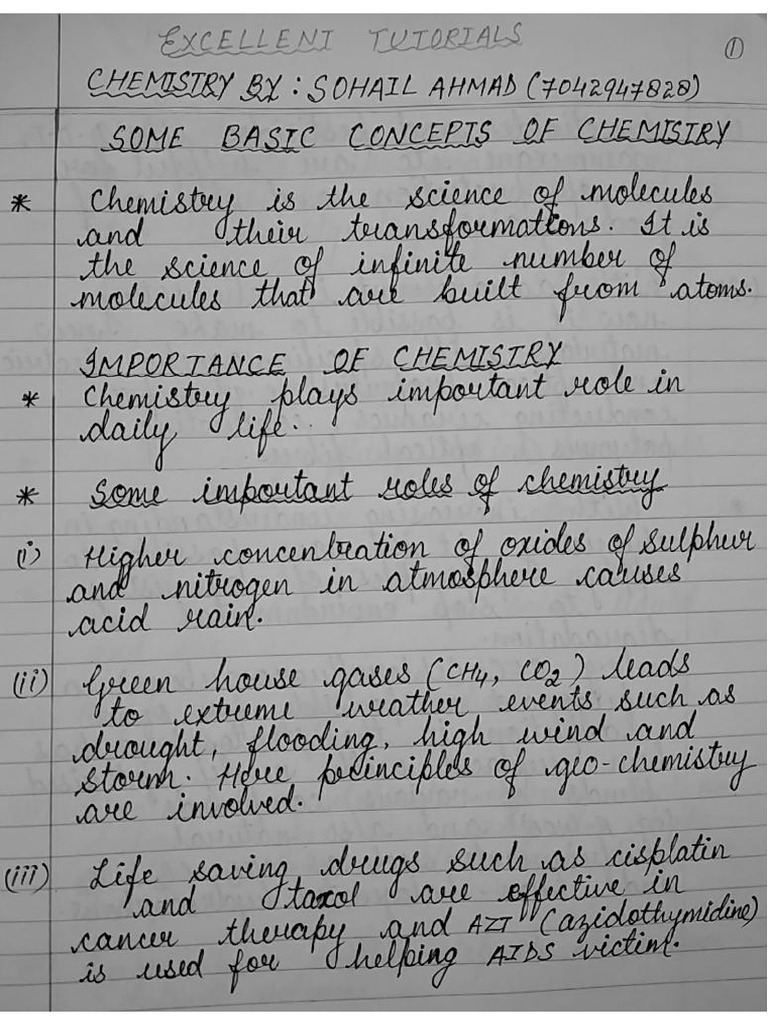 EXCELLENT TUTORIALS
①
CHEMISTRY BY : SOHAIL AHMAD (7042947828)
SOME BASIC CONCEPTS OF CHEMISTRY
* Chemistry is the science of molecules
and their transformations. It is
the science of infinite number of
molecules that are built from atoms.
IMPORTANCE OF CHEMISTRY
* Chemistry plays important role in
daily life.
* Some important roles of chemistry
(i) Higher concentration of oxides of sulphur
and nitrogen in atmosphere causes
acid rain.
(ii) Green house gases (CH4, CO2) leads
to extreme weather events such as
drought, flooding, high wind and
storm. Here principles of geo-chemistry
are involved.
(iii) Life saving drugs such as cisplatin
and taxol are effective in
cancer therapy and AZT (azidothymidine)
is used for helping AIDS victim.